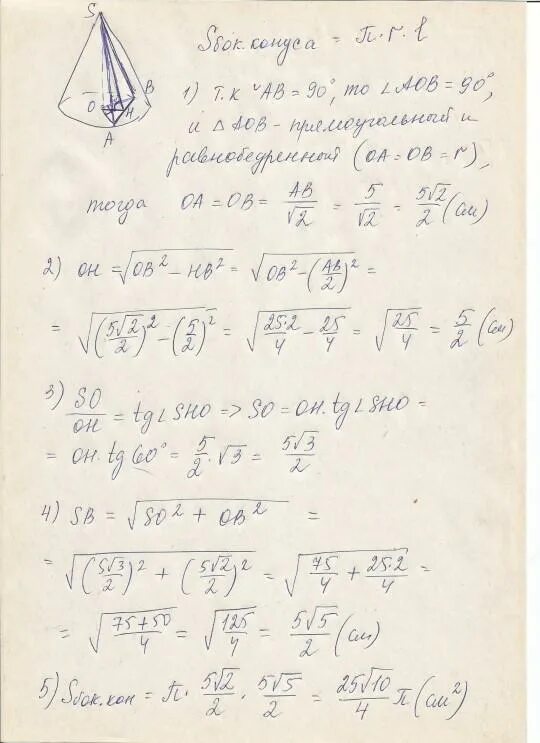 S
O
B
H
A
Sбок.конуса = П·r·l
1) Т.к ◡AB = 90°, то ∠AOB = 90°,
и △AOB - прямоугольный и
равнобедренный (OA = OB = r),
тогда OA = OB = AB/√2 = 5/√2 = 5√2/2 (см)
2) OH = √(OB² - HB²) = √(OB² - (AB/2)²) =
= √((5√2/2)² - (5/2)²) = √(25·2/4 - 25/4) = √(25/4) = 5/2 (см)
3) SO/OH = tg∠SHO => SO = OH·tg∠SHO =
= OH·tg60° = 5/2·√3 = 5√3/2
4) SB = √(SO² + OB²) =
= √((5√3/2)² + (5√2/2)²) = √(75/4 + 25·2/4) =
= √((75+50)/4) = √(125/4) = 5√5/2 (см)
5) Sбок.кон = П·5√2/2·5√5/2 = 25√10/4 П (см²)